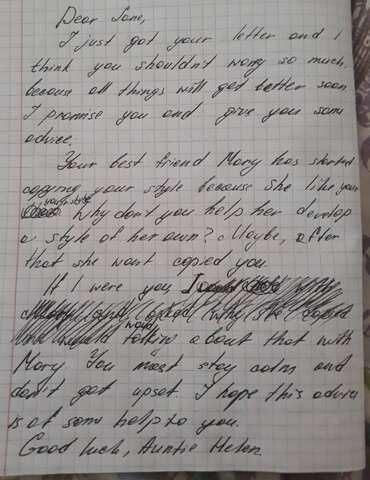 Dear Jane,
I just got your letter and I
think you shouldn't worry so much,
because all things will get better soon.
I promise you and give you some
advice.
Your best friend Mary has started
copying your style because she like your
Why don't you help her develop
a style of her own? Maybe, after
that she want copied you.
If I were you, I
would
talking about that with
Mary. You must stay calm and
don't got upset. I hope this advice
is of some help to you.
Good luck, Auntie Helen.